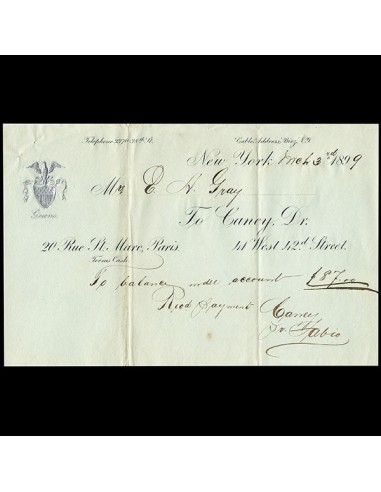 Telephone 2270-38th St. Cable Address,
New York Mch 3rd 1899
M E. H. Gray
Gowns.
To Caney, Dr.
20 Rue St. Marc, Paris. 41 West 42d Street.
Terms Cash.
To balance mdse account $87.00
Recd payment Caney